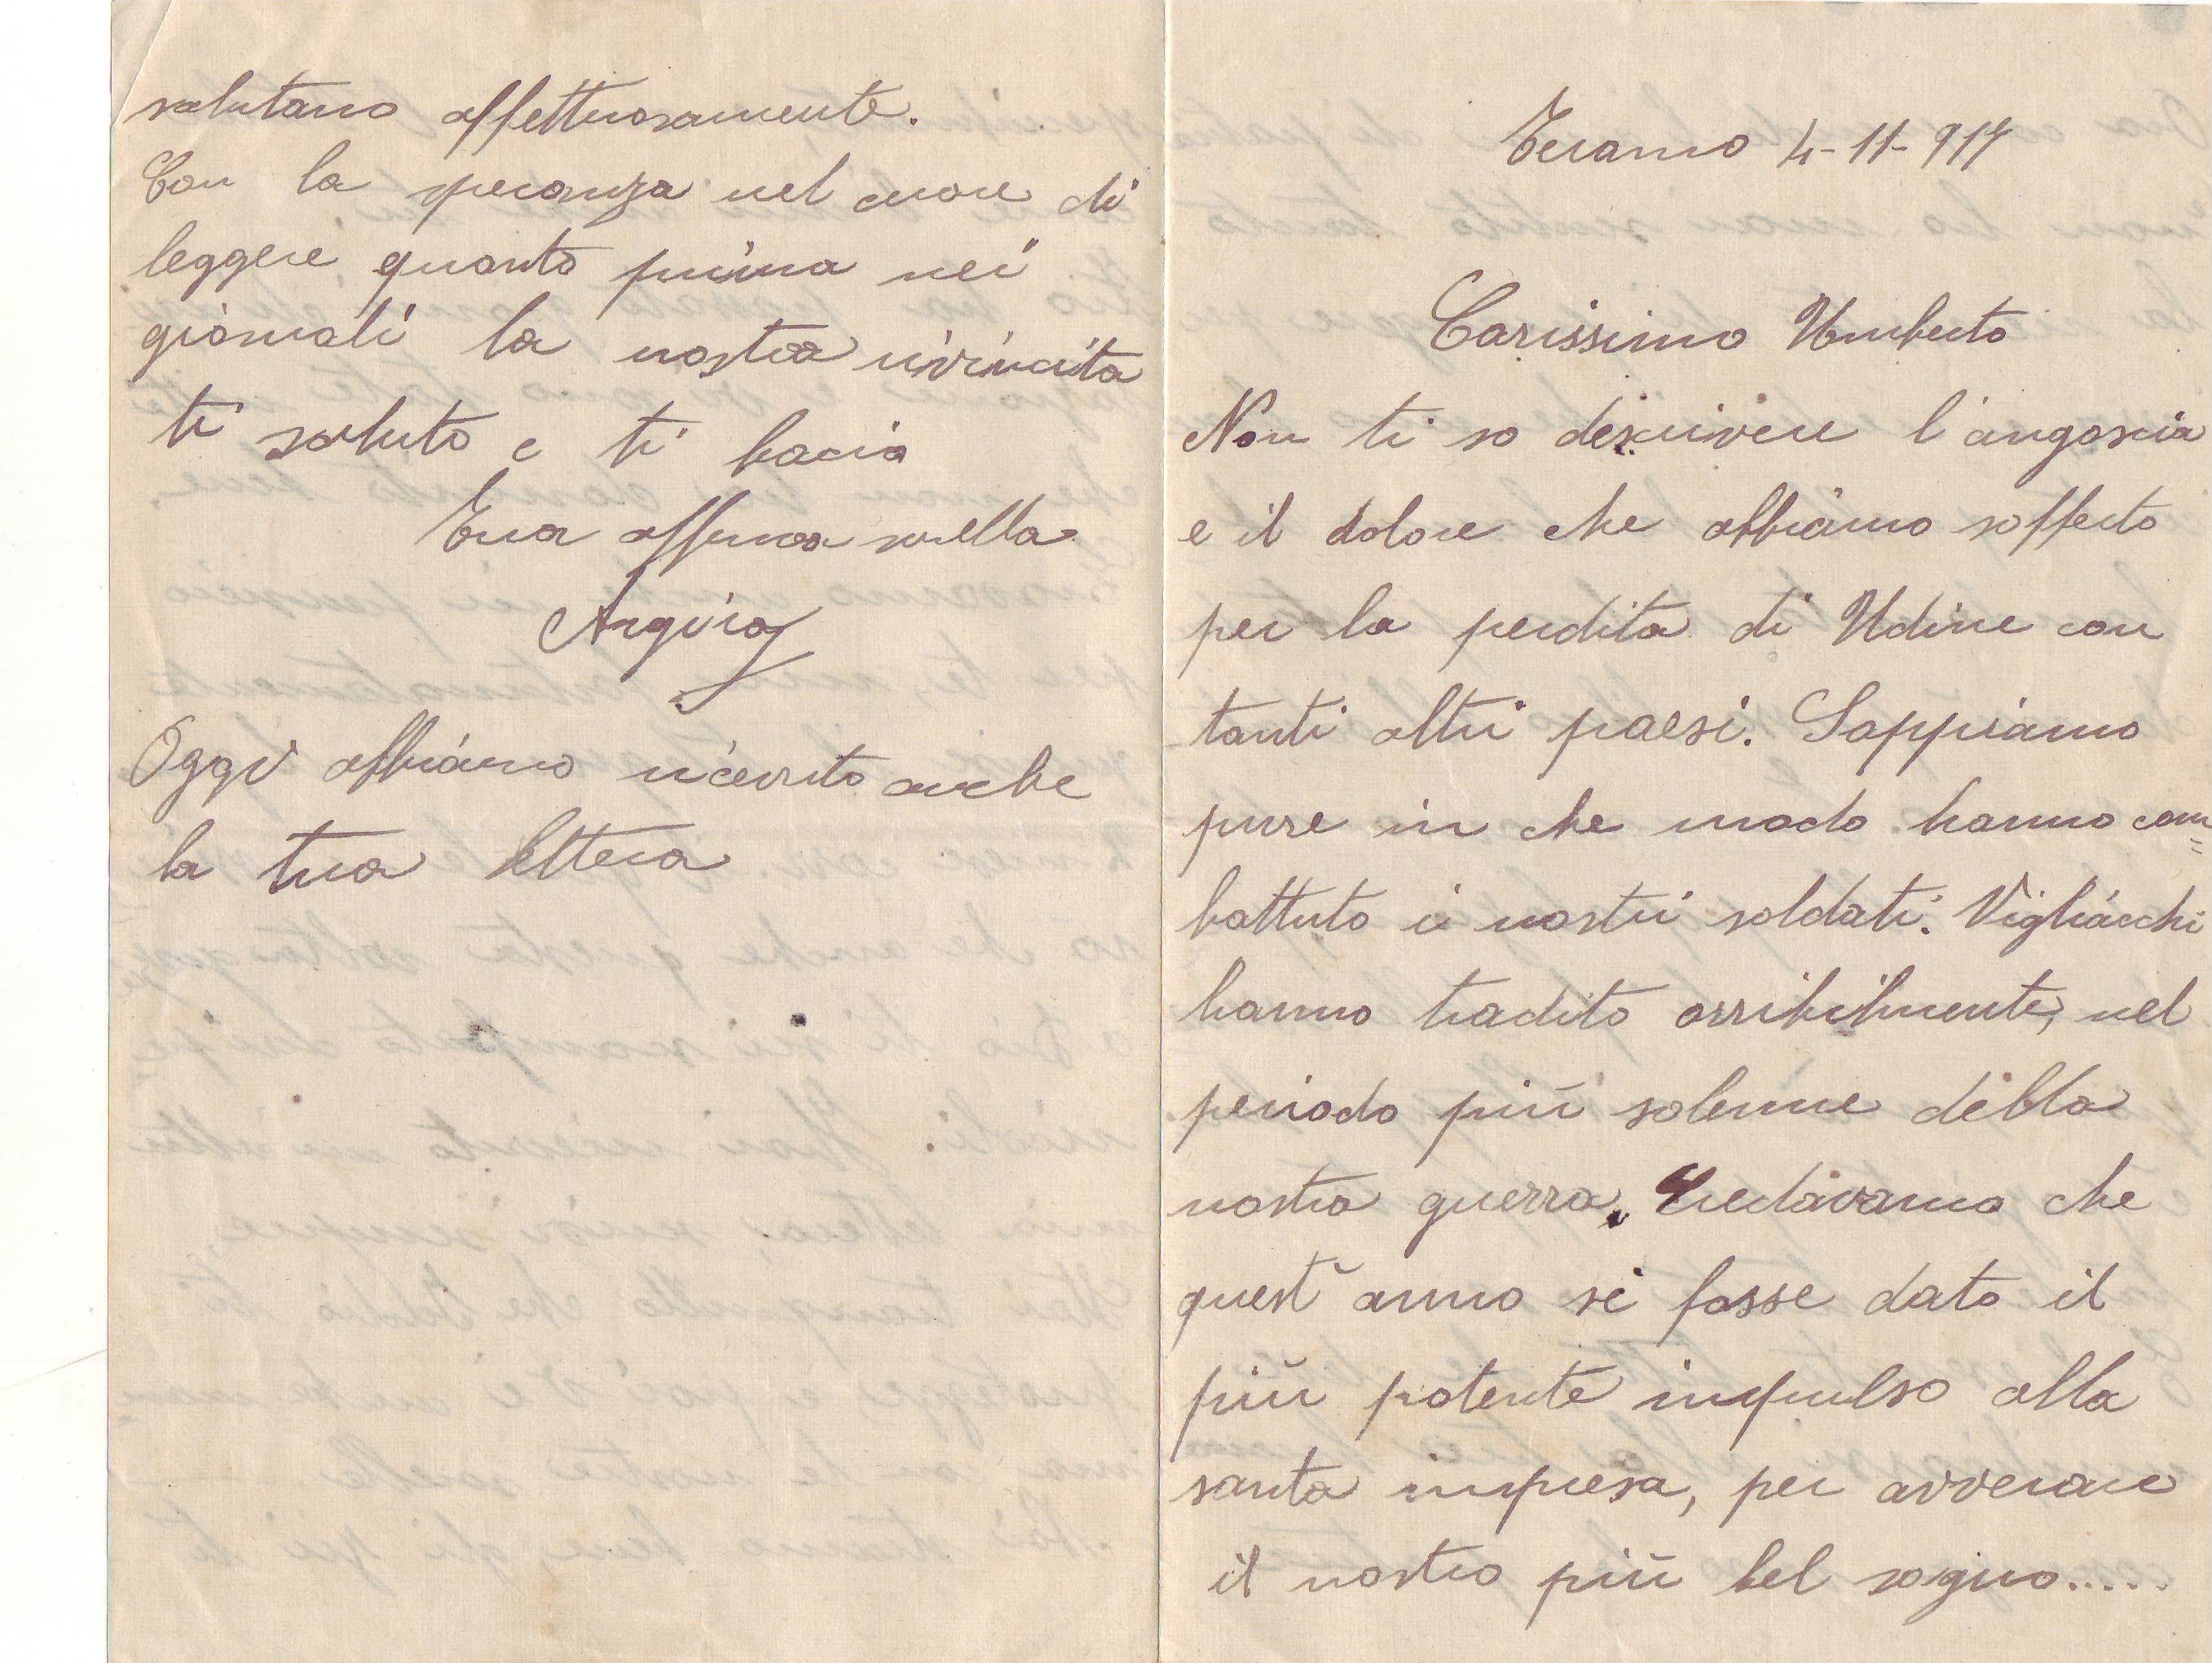 Teramo 4-11-917
Carissimo Umberto
Non ti so descrivere l'angoscia
e il dolore che abbiamo sofferto
per la perdita di Udine con
tanti altri paesi. Sappiamo
pure in che modo hanno com=
battuto i nostri soldati. Vigliacchi
hanno tradito orribilmente, nel
periodo più solenne della
nostra guerra. Credavamo che
quest'anno si fosse dato il
più potente impulso alla
santa impresa, per avverare
il nostro più bel sogno.....
salutano affettuosamente.
Con la speranza nel cuore di
leggere quanto prima nei
giornali la nostra rivincita
ti saluto e ti bacio
Tua affma sorella
Argira
Oggi abbiamo ricevuto anche
la tua lettera